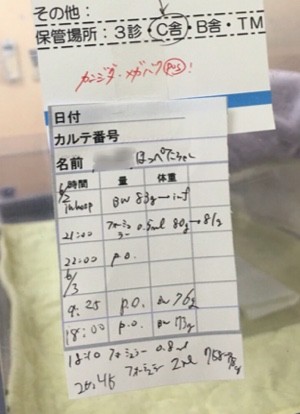 その他:
保管場所:3診・C舎・B舎・TM
カンジダ・メガバク pos!
日付
カルテ番号
名前 ほっぺたちゃん
時間 量 体重
6/2 in hosp BW 83g→inf
21:00 フォーミュラー 0.5ml 80g→81g
22:00 p.o.
6/3
9:25 p.o. BW 76g
18:00 p.o. BW 73g
18:10 フォーミュラー 0.8ml
20:45 フォーミュラー 2ml